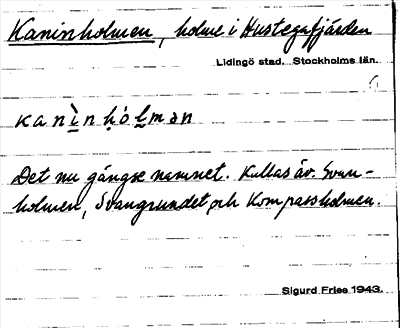 Kaninholmen, holme i Hustegafjärden
Lidingö stad. Stockholms län.
kanìnhólmən
Det nu gängse namnet. Kallas äv. Svan-
holmen, Svangrundet och Kompassholmen.
Sigurd Fries 1943.